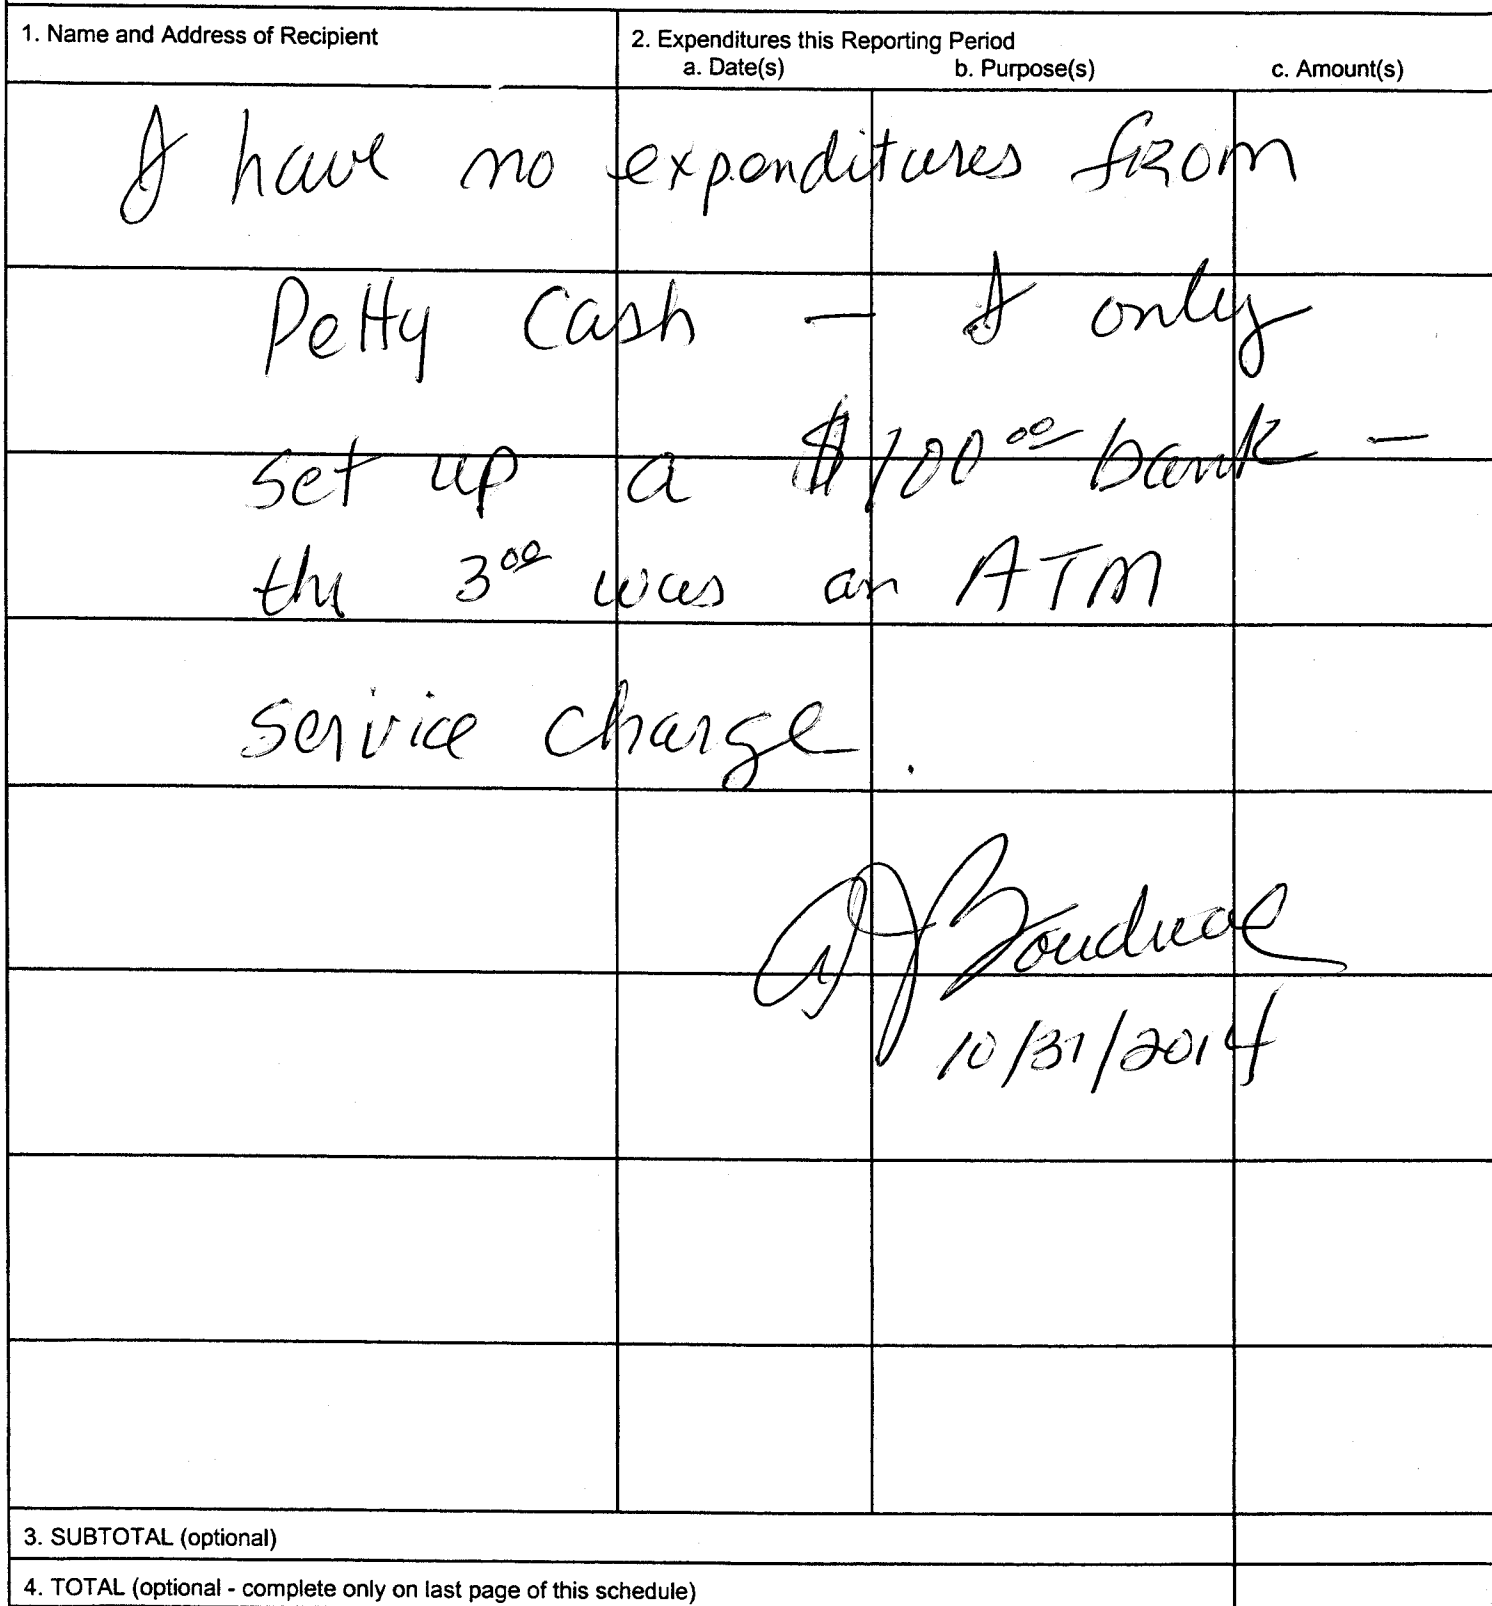 1. Name and Address of Recipient
2. Expenditures this Reporting Period
a. Date(s) b. Purpose(s) c. Amount(s)
I have no expenditures from
Petty Cash – I only
set up a $100.00 bank –
the 3.00 was an ATM
service charge.
10/31/2014
3. SUBTOTAL (optional)
4. TOTAL (optional - complete only on last page of this schedule)